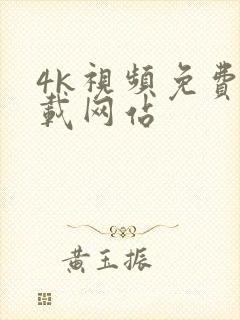 4k視頻免費
載网站
黄玉振